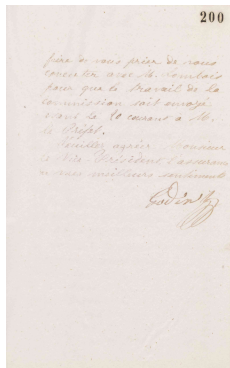 200
fère à vous prier de vous
concerter avec M.
pour que le travail de la
commission soit envoyé
avant le 20 courant à M.
le Préfet.
Veuillez agréer Monsieur
le Vice Président l'assurance
de mes meilleurs sentiments
Godin